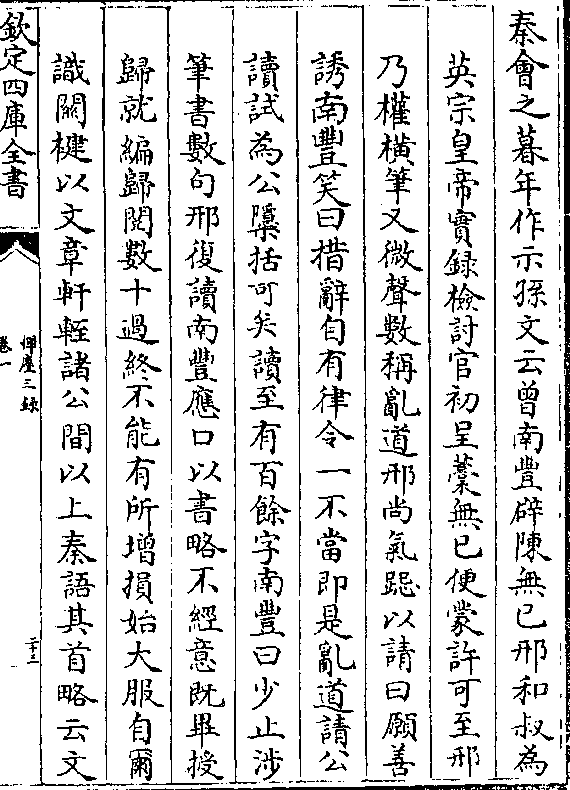 秦會之暮年作示孫文云曾南豐辟陳無已邢和叔為
英宗皇帝實録檢討官初呈藁無已便蒙許可至邢
乃横筆又微聲數稱亂道邢尚氣跽以請曰願善
誘南豐笑曰措辭自有律令一不當即是亂道請公
讀試為公檃括可矣讀至有百餘字南豐曰少止涉
筆書數句邢復讀南豐應口以書略不經意既畢授
歸就編歸閱數十過終不能有所增損始大服自爾
識關楗以文章軒輊諸公間以上秦語其首略云文
欽定四庫全書
揮麈三錄
卷一
二十三